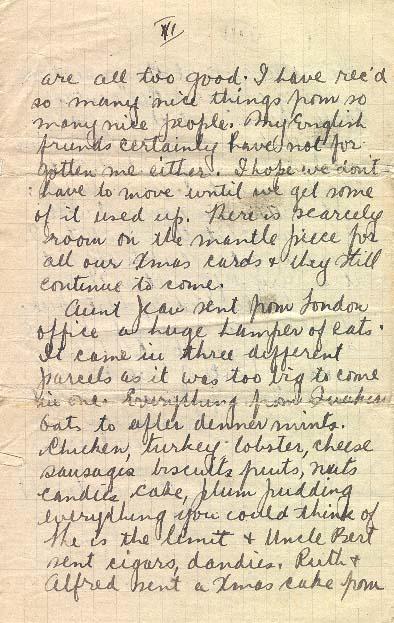 XI
are all too good. I have rec'd
so many nice things from so
many nice people. My English
friends certainly have not for
gotten me either. I hope we don't
have to move until we get some
of it used up. There is scarcely
room on the mantle piece for
all our Xmas cards & they still
continue to come.
Aunt Jean sent from London
office a huge hamper of eats.
It came in three different
parcels as it was too big to come
in one. Everything from Quaker
Oats to after denner mints.
Chicken, turkey lobster, cheese
sausages biscuits fruits, nuts
candies cake, plum pudding
everything you could think of
She is the limit & Uncle Bert
sent cigars, dandies. Ruth &
Alfred sent a Xmas cake from